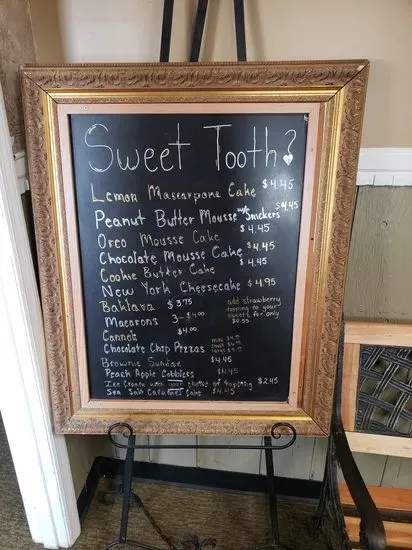 Sweet Tooth?
Lemon Mascarpone Cake $4.45
Peanut Butter Mousse w/ Snickers $4.45
Oreo Mousse Cake $4.45
Chocolate Mousse Cake $4.45
Cookie Butter Cake $4.45
New York Cheesecake $4.95
Baklava $3.75
add strawberry
topping to your
sweets for only
Macarons 3-$4.00
Cannoli $4.00
Chocolate Chip Pizzas mini
small
large
Brownie Sundae $4.45
Peach Apple Cobblers $4.45
Ice Cream with your choice of topping $2.45
Sea Salt Caramel Cake $4.45